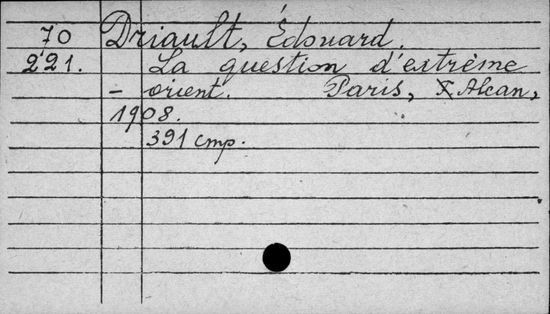 70 Driault, Édouard.
221. La question d'extrème
- orient. Paris, F. Alcan,
1908.
391 стр.